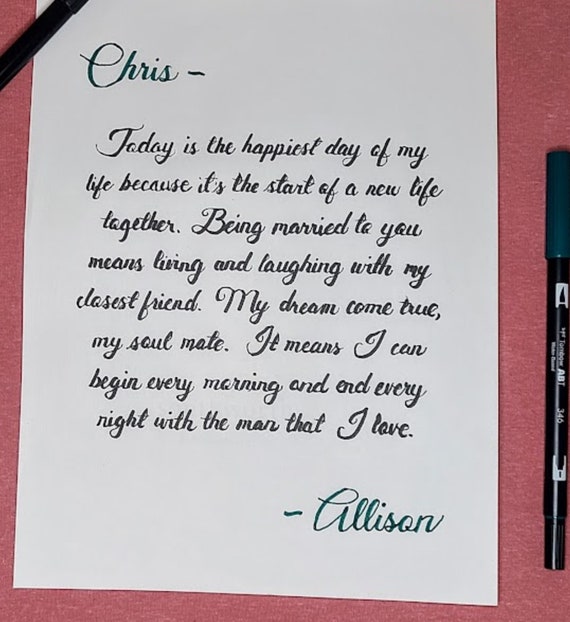 Chris -
Today is the happiest day of my
life because it's the start of a new life
together. Being married to you
means living and laughing with my
closest friend. My dream come true,
my soul mate. It means I can
begin every morning and end every
night with the man that I love.
- Allison
Tombow ABT
346